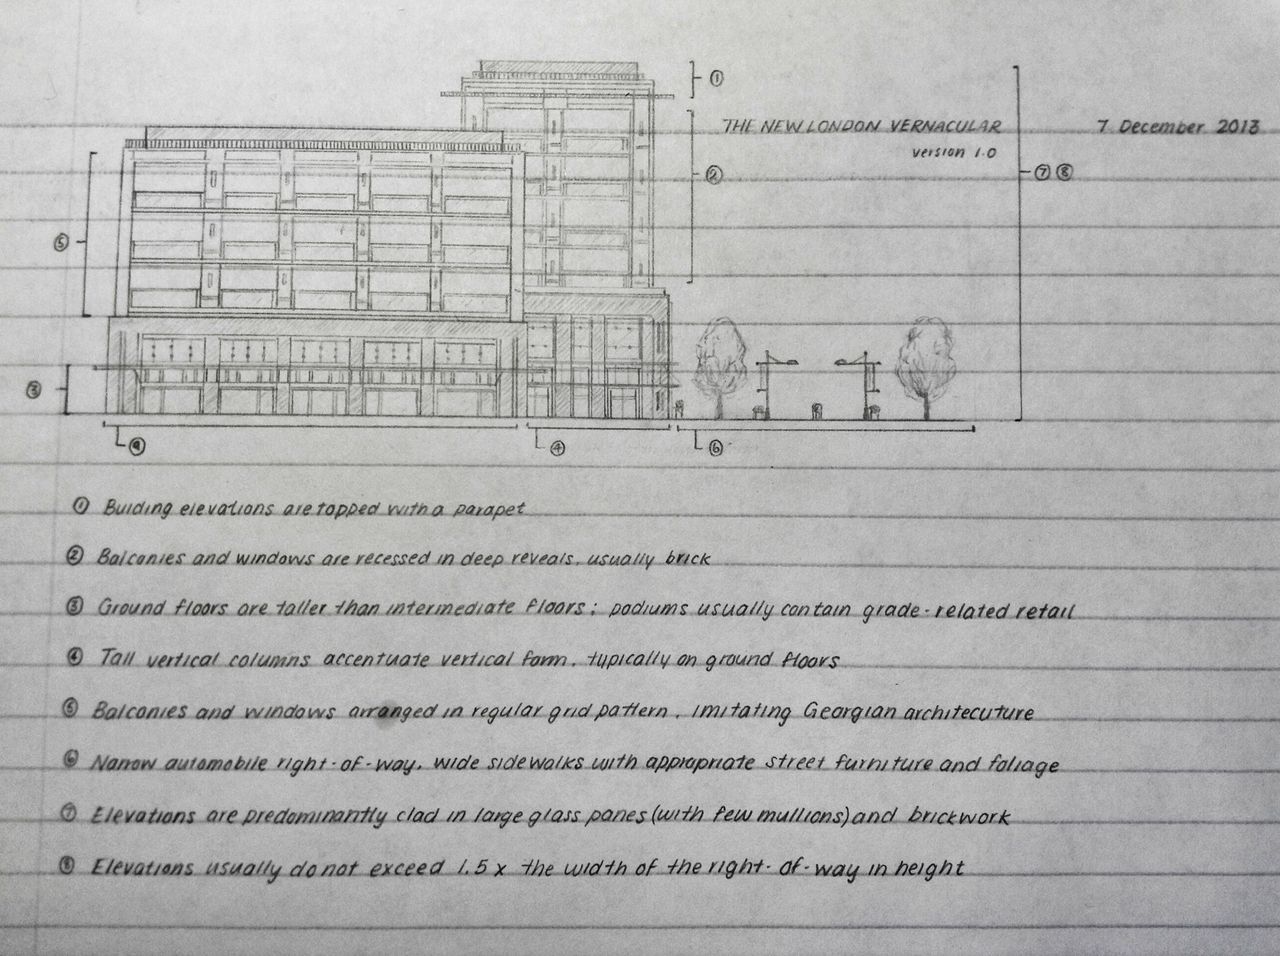 ①
THE NEW LONDON VERNACULAR
version 1.0
7 December 2013
②
⑦ ⑧
⑤
③
④
④
⑥
① Buiding elevations are topped with a parapet
② Balconies and windows are recessed in deep reveals, usually brick
③ Ground floors are taller than intermediate floors; podiums usually contain grade-related retail
④ Tall vertical columns accentuate vertical form, typically on ground floors
⑤ Balconies and windows arranged in regular grid pattern, imitating Georgian architecuture
⑥ Narrow automobile right-of-way, wide sidewalks with appropriate street furniture and foliage
⑦ Elevations are predominantly clad in large glass panes (with few mullions) and brickwork
⑧ Elevations usually do not exceed 1.5 x the width of the right-of-way in height